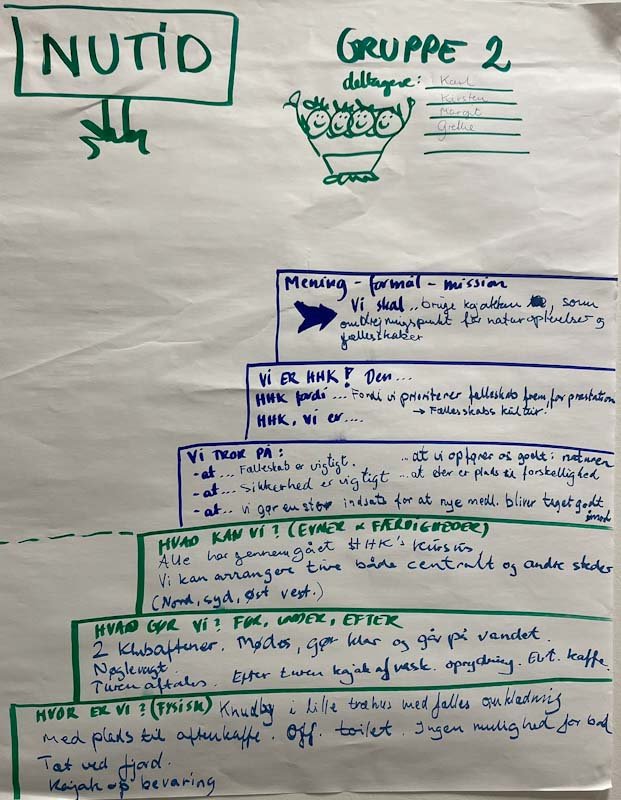 NUTID
GRUPPE 2
deltagere: Karl
Karsten
Margit
Grethe
Mening - formål - mission
Vi skal .. bruge kajakken , som
omdrejningspunkt for naturoplevelser og
fællesskaber
Vi ER HHK! Den...
HHK fordi ... Fordi vi prioriterer fælleskab frem for præstation
HHK, vi er.... → Fællesskabs kultur.
Vi TROR PÅ:
-at... Fælleskab er vigtigt. ...at vi opfører os godt i naturen
-at... Sikkerhed er vigtigt ...at der er plads til forskellighed
-at.. vi gør en stor indsats for at nye medl. bliver taget godt
imod
HVAD KAN Vi? (EVNER & FÆRDIGHEDER)
Alle har gennemgået HHK's kursus
Vi kan arrangere ture både centralt og andre steder
(Nord, syd, øst vest.)
HVAD GØR Vi? FØR, UNDER, EFTER
2 Klubaftener. Mødes, gør klar og går på vandet.
Nøglevagt.
Turen aftales. Efter turen kajak afvask. oprydning. Evt. kaffe.
HVOR ER Vi? (FYSISK) Knudby i lille træhus med fælles omklædning
Med plads til aftenkaffe. Off. toilet. Ingen mulighed for bad
Tæt ved fjord.
Kajak op bevaring